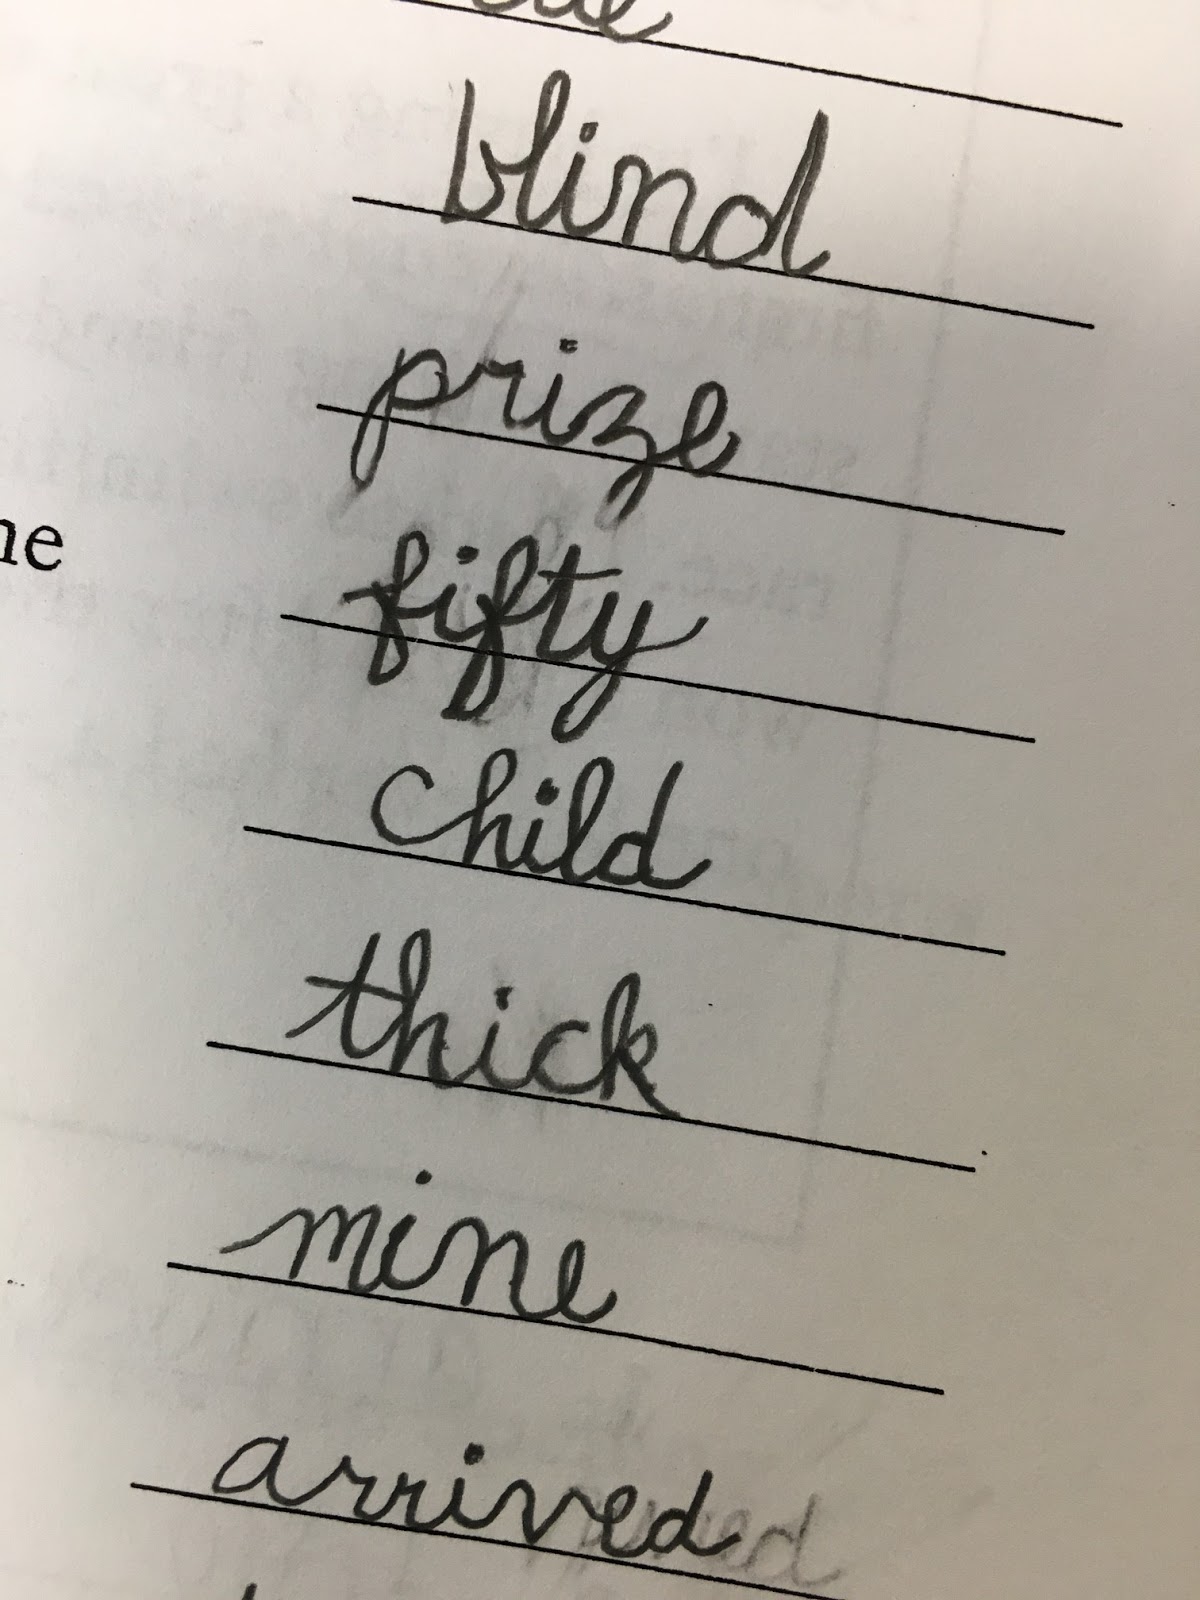 blind
prize
fifty
child
thick
mine
arrived